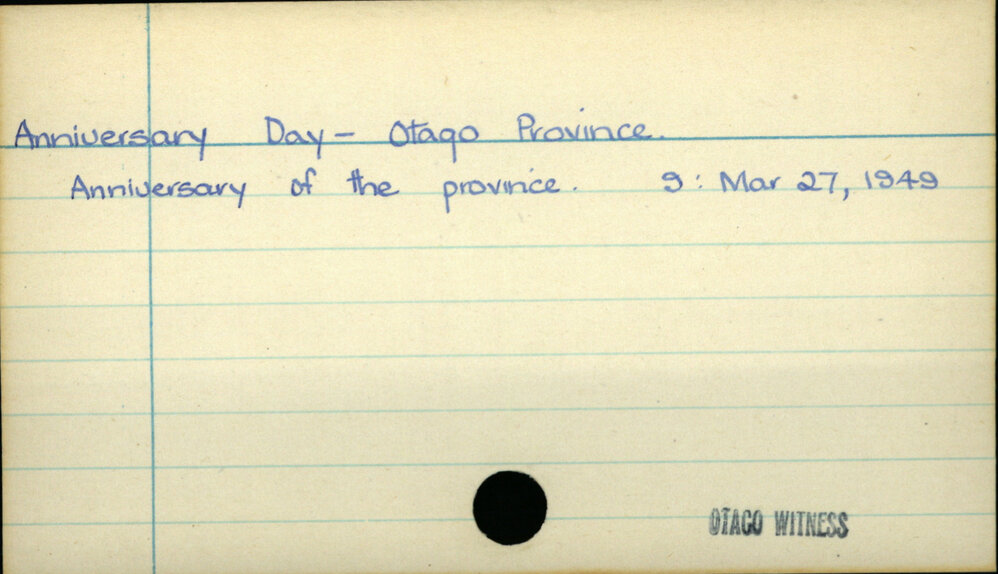 Anniversary Day - Otago Province.
Anniversary of the province. 9: Mar 27, 1949
OTAGO WITNESS